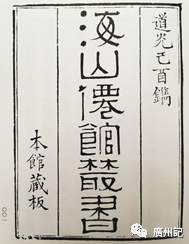 道光己酉鐫
海山僊館叢書
本館藏板
〇〇一
廣州記